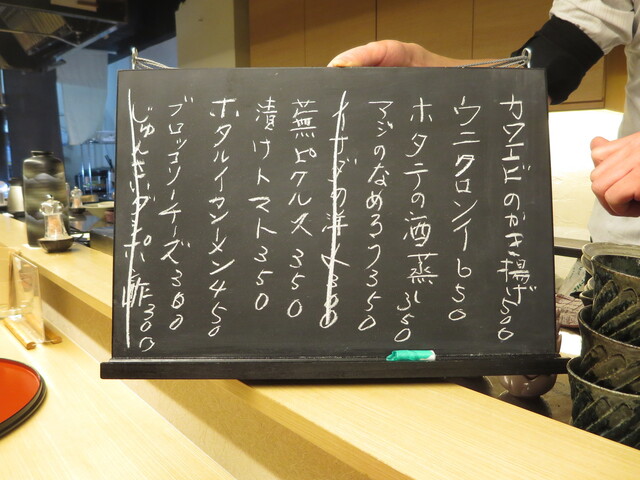 カワエビのかき揚げ500
ウニクロンイ650
ホタテの酒蒸し350
アジのなめろう350
イナダの
蕪ピクルス350
漬けトマト350
ホタルイカソーメン450
ブロッコリーチーズ300
じゅんさい 酢300